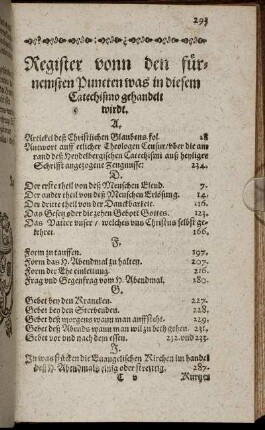 293
Register vonn den für-
nemsten Puncten was in diesem
Catechismo gehandelt
wirdt.
A.
Articket deß Christlichen Glaubens. fol. 18
Antwort auff etlicher Theologen Censur/ vber die am
rand deß Heydelbergischen Catechismi auß heyliger
Schrifft angezogene Zeugnusse: 234.
D.
Der erste theil von deß Menschen Elend. 7.
Der ander theil von deß Menschen Erlösung. 14.
Der dritte theil von der Danckbarkeit. 116.
Das Gesetz oder die zehen Gebott Gottes. 123.
Das Vatter vnser / welches vns Christus selbst ge-
lehret. 166.
F.
Form zu tauffen. 197.
Form das H. Abendmal zu halten. 207.
Form der Ehe einleitung. 216.
Frag vnd Gegenfrag vom H. Abendmal. 180.
G.
Gebet bey den Krancken. 227.
Gebet bey den Sterbenden. 228.
Gebet deß morgens wann man auffsteht. 229.
Gebet deß Abends wann man wil zu beth gehen. 231.
Gebet vor vnd nach dem essen. 232. vnd 233.
J.
In was stücken die Euangelischen Kirchen im handel
deß H. Abendmals einig oder streittig. 287.
T v Kurtzer